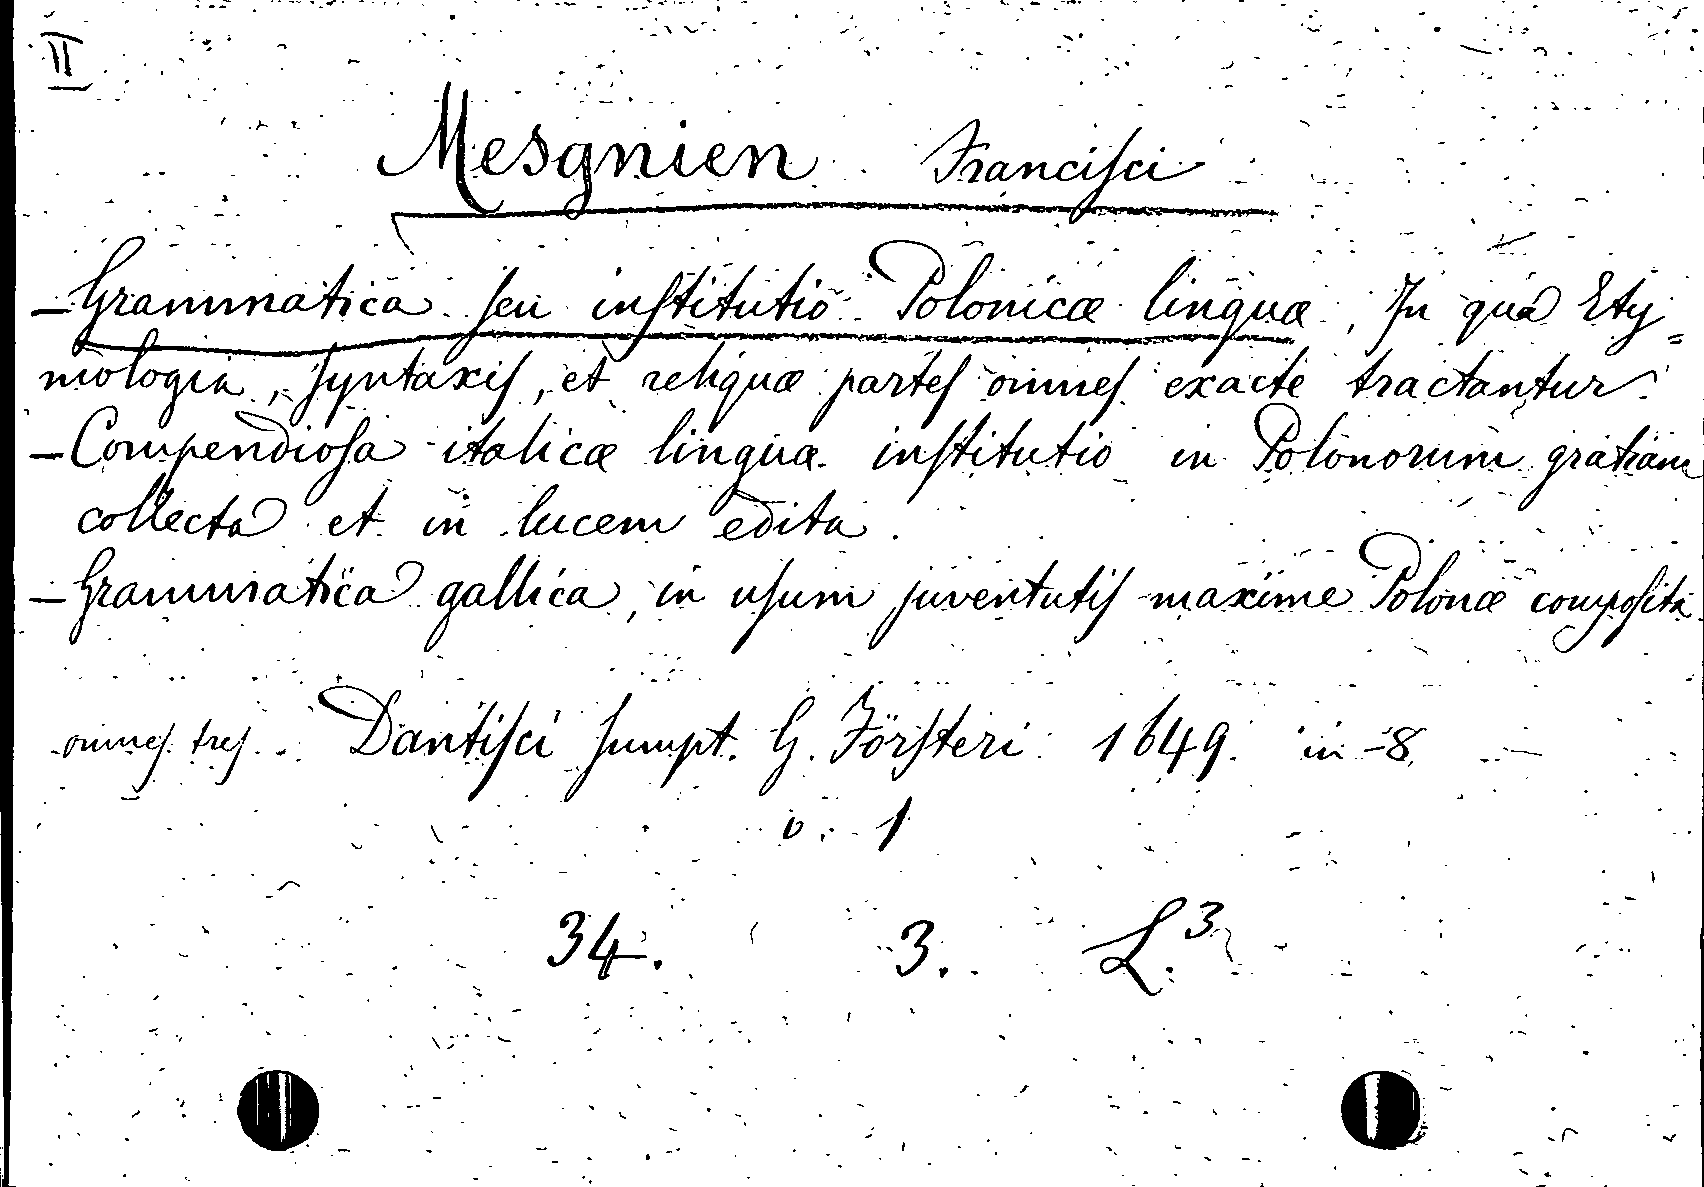 II
Mesgnien Franciſci
- Grammatica ſeu inſtitutio Polonicæ linguæ, In quâ Ety=
mologia, ſyntaxiſ, et reliquæ parteſ omneſ exacte tractantur.
- Compendioſa italicæ linguæ inſtitutio in Polonorum gratiam
collecta et in lucem edita.
- Grammatica gallica, in uſum juventutiſ maxime Polonæ compoſita.
omneſ treſ. Dantiſci ſumpt. G. Förſteri 1649. in -8.
v. 1
34. 3. L.3